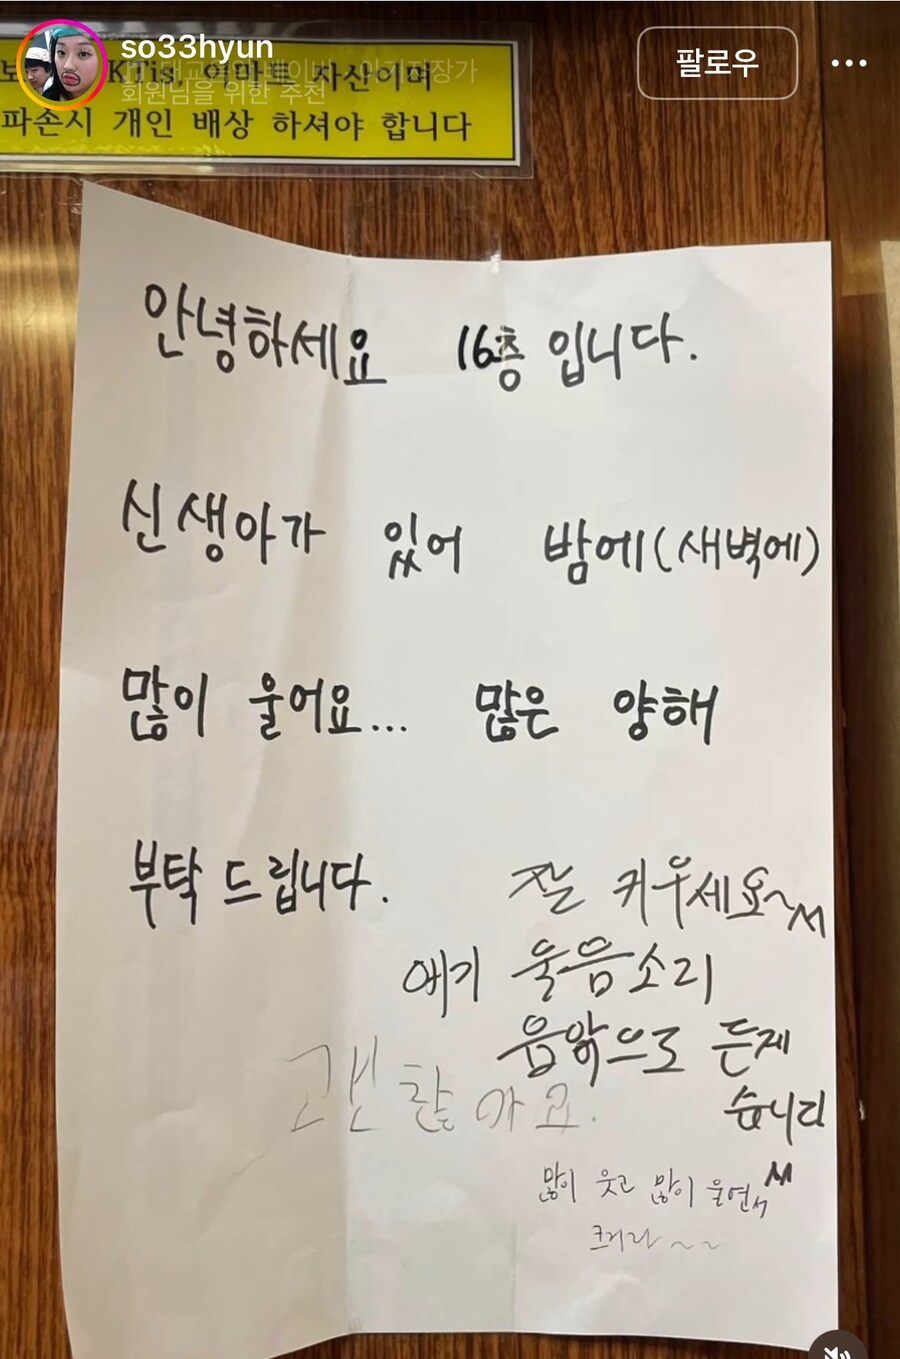 so33hyun
회원님을 위한 추천
팔로우
KTis, 이마트 자산이며
파손시 개인 배상 하셔야 합니다
안녕하세요 16층 입니다.
신생아가 있어 밤에(새벽에)
많이 울어요... 많은 양해
부탁 드립니다.
잘 키우세요~
애기 울음소리
음악으로 듣겠
습니다
괜찮아요.
많이 웃고 많이 울면서
크거라~~